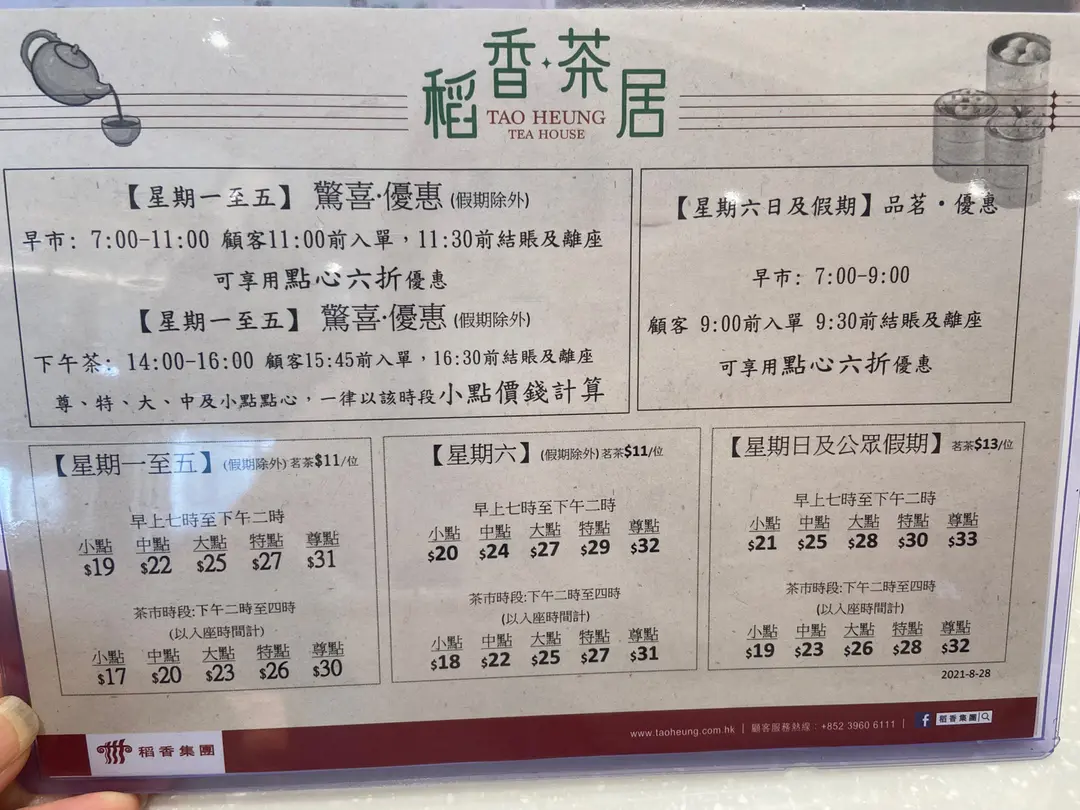 稻香·茶居
TAO HEUNG
TEA HOUSE
【星期一至五】 驚喜·優惠 (假期除外)
早市: 7:00-11:00 顧客11:00前入單，11:30前結賬及離座
可享用點心六折優惠
【星期一至五】 驚喜·優惠 (假期除外)
下午茶: 14:00-16:00 顧客15:45前入單，16:30前結賬及離座
尊、特、大、中及小點點心，一律以該時段小點價錢計算
【星期六日及假期】品茗·優惠
早市: 7:00-9:00
顧客 9:00前入單 9:30前結賬及離座
可享用點心六折優惠
【星期一至五】(假期除外) 茗茶$11/位
早上七時至下午二時
小點 中點 大點 特點 尊點
$19 $22 $25 $27 $31
茶市時段:下午二時至四時
(以入座時間計)
小點 中點 大點 特點 尊點
$17 $20 $23 $26 $30
【星期六】(假期除外) 茗茶$11/位
早上七時至下午二時
小點 中點 大點 特點 尊點
$20 $24 $27 $29 $32
茶市時段:下午二時至四時
(以入座時間計)
小點 中點 大點 特點 尊點
$18 $22 $25 $27 $31
【星期日及公眾假期】茗茶$13/位
早上七時至下午二時
小點 中點 大點 特點 尊點
$21 $25 $28 $30 $33
茶市時段:下午二時至四時
(以入座時間計)
小點 中點 大點 特點 尊點
$19 $23 $26 $28 $32
2021-8-28
稻香集團
www.taoheung.com.hk | 顧客服務熱線：+852 3960 6111 | f 稻香集團